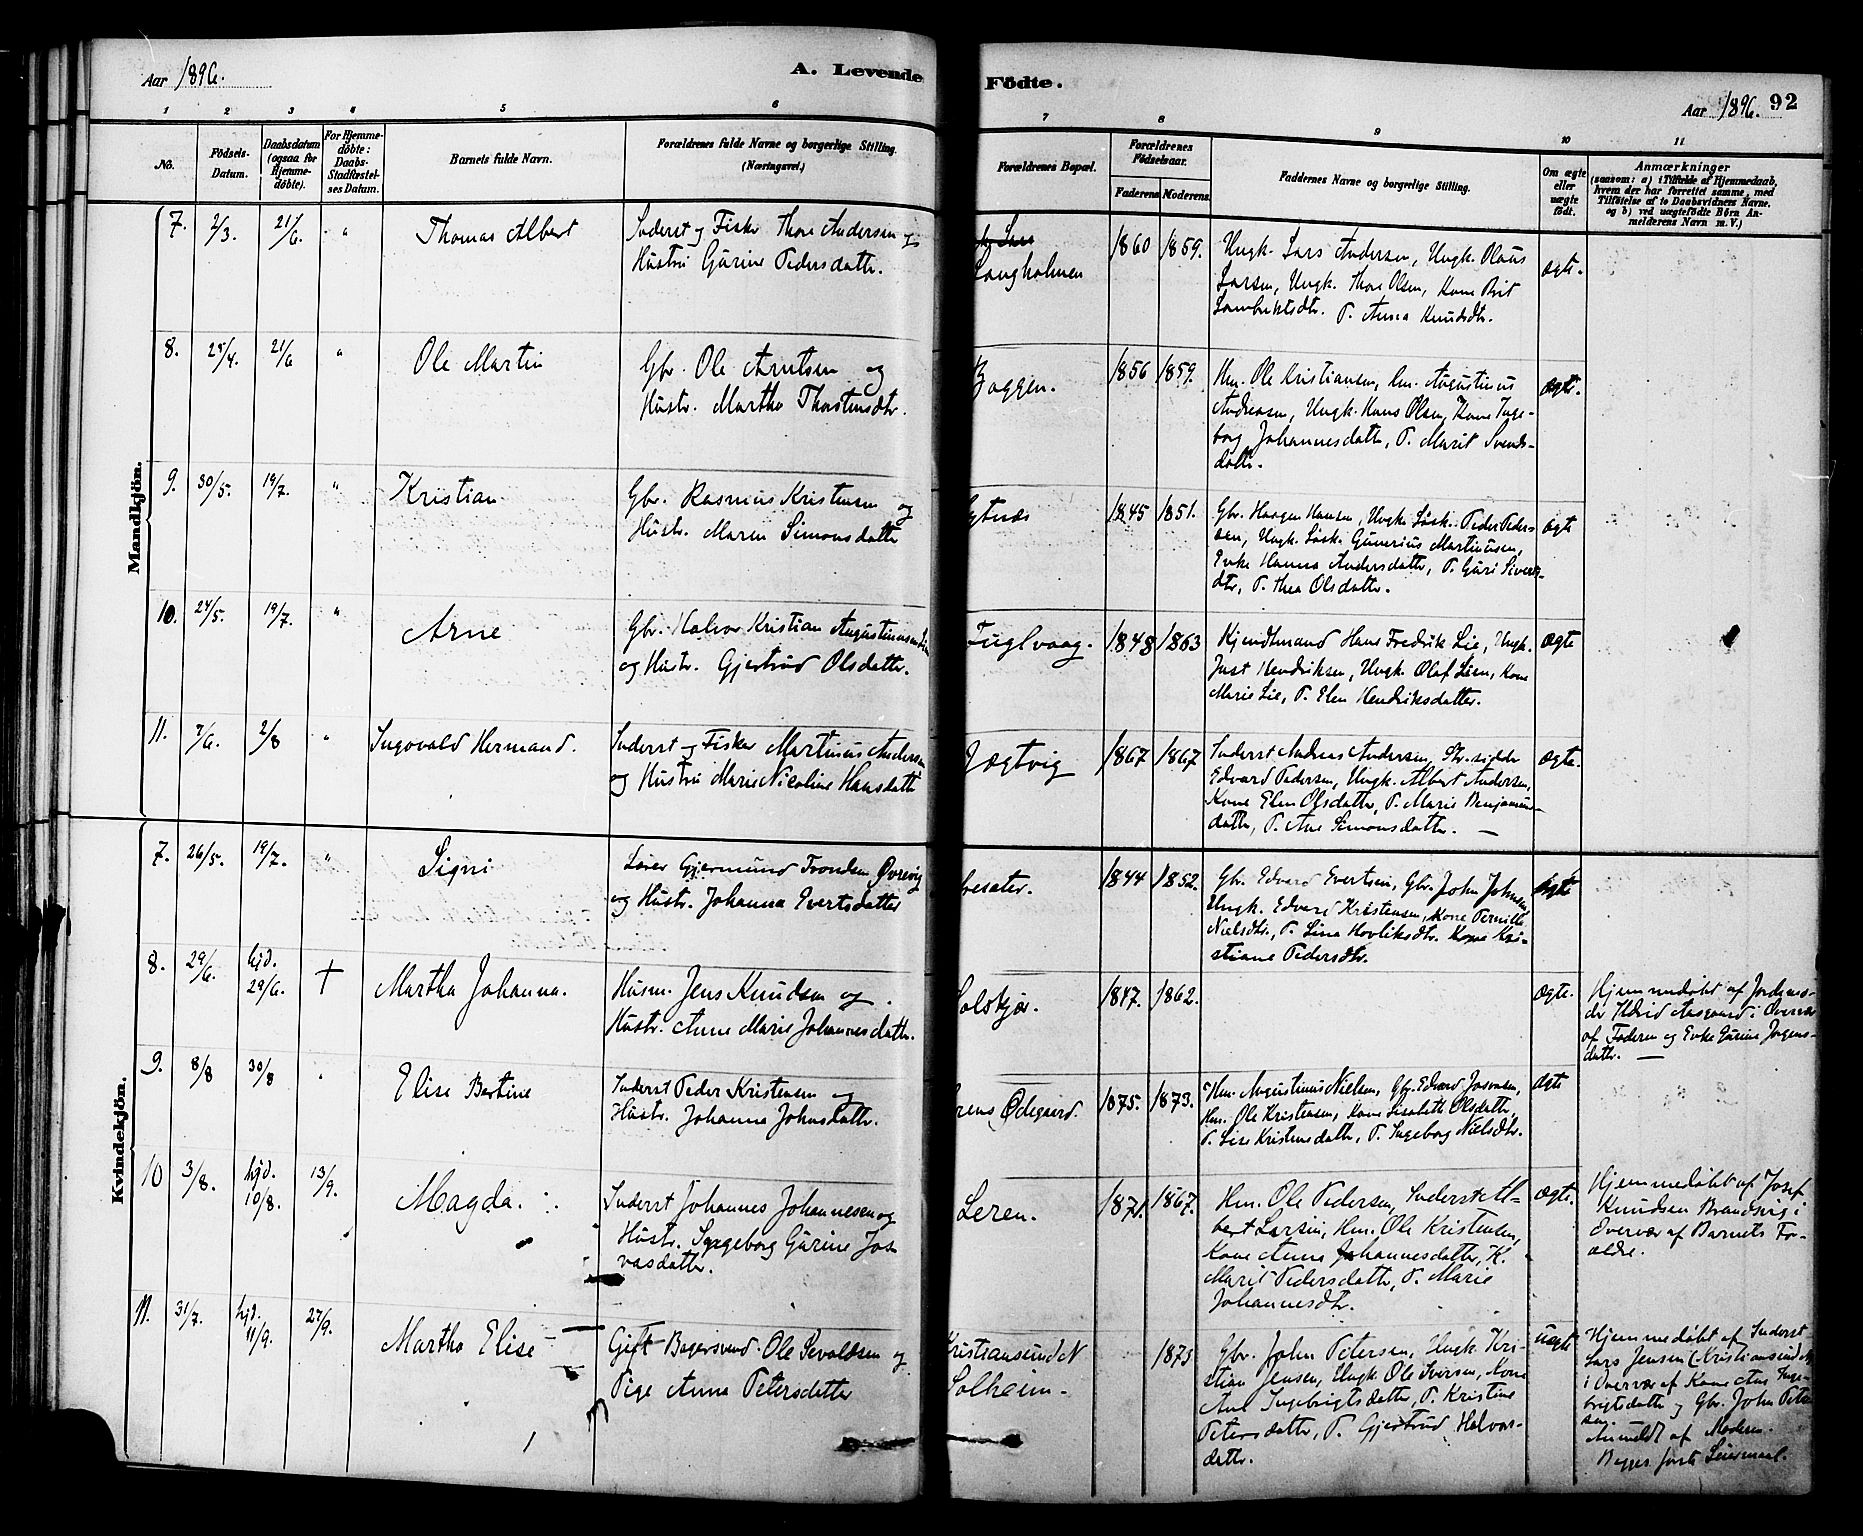 Aar 1896.
A. Levende Födte.
Aar 1896. 92
1 2 3 4 5 6 7 8 9 10 11
No.
Födsels-
Datum.
Daabsdatum
(ogsaa for
Hjemme-
döbte).
For Hjemme-
döbte:
Daabs-
Stadfæstel-
ses Datum.
Barnets fulde Navn.
Forældrenes fulde Navne og borgerlige Stilling.
(Næringsvei.)
Forældrenes Bopæl.
Forældrenes
Födselsaar.
Faderens. Moderens.
Faddernes Navne og borgerlige Stilling.
Om ægte
eller
uægte
födt.
Anmærkninger
(saasom: a) i Tilfælde af Hjemmedaab,
hvem der har forrettet samme, med
Tilföielse af to Daabsvidners Navne,
og b) ved uægtefödte Börn An-
melderens Navn m. V.)
Mandkjön.
7. 2/3. 21/6. " Thomas Albert
Inderst og Fisker Thore Andersen og
Hustru Gurine Pedersdatter.
Langholmen
1860 1859.
Ungk. Lars Andersen, Ungk. Olaus
Larsen, Ungk. Thore Olsen, Kone Brit
Lambrektsdtr. P. Anna Knudsdtr.
ægte.
8. 25/4. 21/6 " Ole Martin
Gbr. Ole Arntsen og
Hustr. Martha Thorstensdtr.
Boggen.
1856 1859.
Hm. Ole Kristiansen, Hm. Augustinus
Andreasen, Ungk. Hans Olsen, Kone Inge-
borg Johannesdatter, P. Marit Svends-
datter.
ægte.
9. 30/5. 19/7. " Kristian
Gbr. Rasmus Kristensen og
Hustr. Maren Simonsdatter
1845 1851.
Gbr. Haagen Hansen, Ungk. Løsk. Peder Peders
sen, Ungk. Løsk. Gunerius Martinusen,
Enke Hanna Andersdatter, P. Guri Siverts-
dtr, P. Thea Olsdatter.
ægte
10. 24/5. 19/7. " Arne
Gbr. Halvor Kristian Augustinusen Lien
og Hustr. Gjertrud Olsdatter.
Fuglvaag.
1848 1863
Kjendtmand Hans Fredrik Lie, Ungk.
Just Hendriksen, Ungk. Olaf Lien, Kone
Marie Lie, P. Elen Hendriksdatter.
ægte
11. 7/6. 2/8 " Ingvald Hermand.
Inderst og Fisker Martinus Andersen
og Hustru Marie Nicoline Hansdatter
Jægtvig
1867 1867
Inderst Andreas Andersen, Str.sidder
Edvard Pedersen, Ungk. Albert Andersen,
Kone Elen Olsdatter, P. Marie Benjamins-
datter, P. Ane Simonsdatter. —
ægte.
Kvindekjön.
7. 26/5. 19/7. " Signi
Leier Gjermund Trondsen Øvrevig
og Hustr. Johanna Evertsdatter
1844 1852.
Gbr. Edvard Evertsen, Gbr. John Johnsen
Ungk. Edvard Kristensen, Kone Pernille
Nielsdtr., P. Lina Hovliksdtr. Kone Kri-
stiane Pedersdtr.
ægte
8. 29/6. hjd.
29/6. † Martha Johanna.
Husm. Jens Knudsen og
Hustr. Anne Marie Johannesdatter.
Solskjær.
1847. 1862.
ægte.
Hjemmedøbt af Jordemo-
der Ildrid Aasgaard i Overvær
af Faderen og Enke Gurine Jørgens-
datter. —
9. 8/8 30/8 " Elise Bertine
Inderst Peder Kristensen og
Hustr. Johanna Johnsdatter.
Ødegaard.
1875. 1873.
Hm. Augustinus Nielsen, Gbr. Edvard Josvasen,
Hm. Ole Kristensen, Kone Lisabeth Olsdatter,
P. Lise Kristensdatter, P. Ingeborg Nielsdtr.
ægte
10 3/8. hjd.
10/8. 13/9. Magda.
Inderst Johannes Johannesen og
Hustr. Ingeborg Gurine Jos-
vasdatter.
Leren.
1871. 1867.
Hm. Ole Pedersen, Inderst Al-
bert Larsen, Hm. Ole Kristensen,
Kone Anna Johannesdatter, K.
Marit Pedersdatter, P. Marie
Johannesdtr.
ægte.
Hjemmedøbt af Josef
Knudsen Brandsvig i
Overvær af Barnets Fo-
ældre.
11. 31/7. hjd.
11/9. 27/9. Martha Elise
Gift Bagersvend Ole Sevaldsen og
Pige Anna Petersdatter
Kristiansund N
Solheim.
1873
Gbr. John Petersen, Ungk. Kri-
stian Jensen, Ungk. Ole Iversen, Kone
Ane Ingebrigtsdatter, P. Kristine
Petersdatter, P. Gjertrud Halvors-
datter.
uægte
Hjemmedøbt af Inderst
Lars Jensen (Kristiansund N)
i Overvær af Kone Ane Inge-
brigtsdatter og Gbr. John Peter-
sen.
Anmeldt af Moderen.
Begges første Leiermaal.